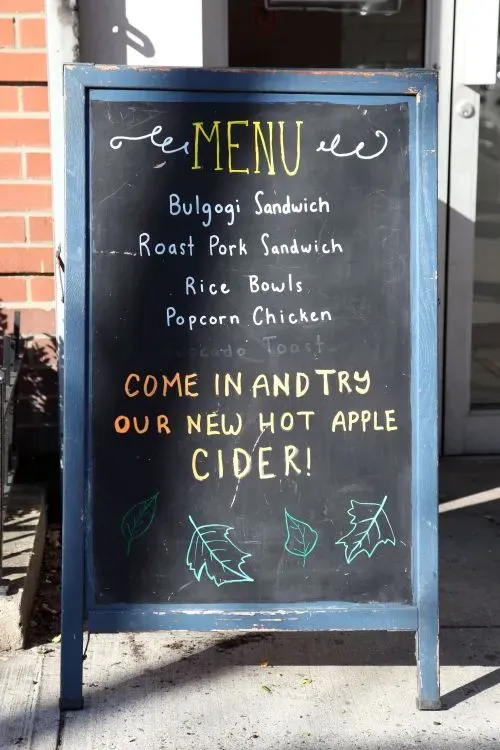 MENU
Bulgogi Sandwich
Roast Pork Sandwich
Rice Bowls
Popcorn Chicken
Toast
COME IN AND TRY
OUR NEW HOT APPLE
CIDER!